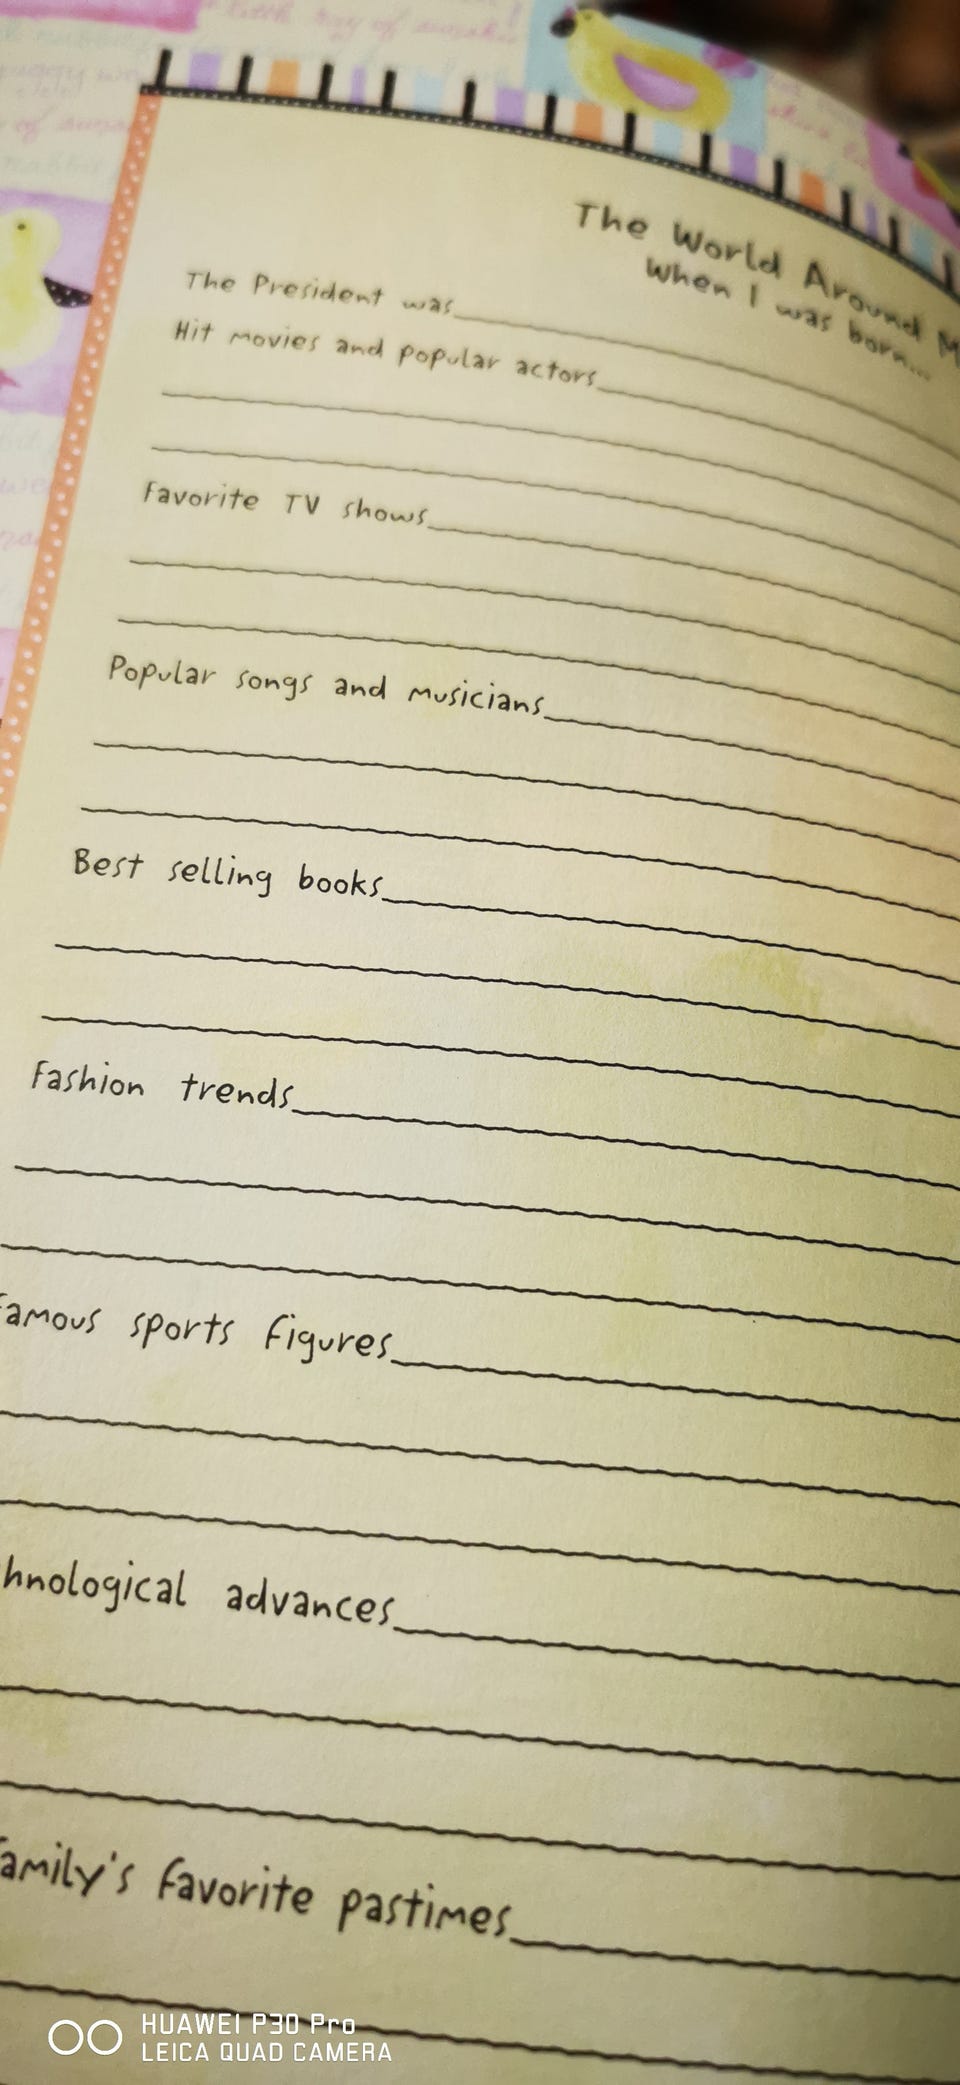 The World Around M
When I was born...
The President was
Hit movies and popular actors
Favorite TV shows
Popular songs and musicians
Best selling books
Fashion trends
Famous sports figures
hnological advances
amily's favorite pastimes
HUAWEI P30 Pro
LEICA QUAD CAMERA